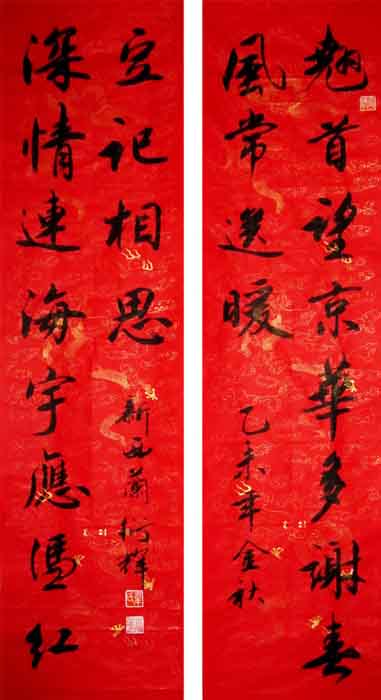 翹首望京華多謝春
風常送暖
乙未年金秋
深情連海宇應憑紅
豆記相思
新西蘭何輝